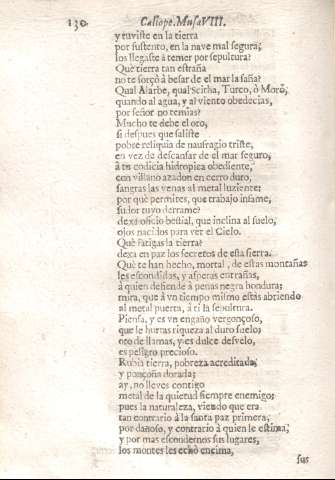 130 Caliope. Musa VIII.
y tuviste en la tierra
por sustento, en la nave mal segura;
los llegaste à temer por sepultura?
Què tierra tan estraña
no te forçò à besar de el mar la saña?
Qual Alarbe, qual Scitha, Turco, ò Moro,
quando al agua, y al viento obedecias,
por señor no temias?
Mucho te debe el oro,
si despues que saliste
pobre reliquia de naufragio triste,
en vez de descansar de el mar seguro,
à tu codicia hidropica obediente,
con villano azadon en cerro duro,
sangras las venas al metal luziente;
por què permites, que trabajo infame,
sudor tuyo derrame?
dexa oficio bestial, que inclina al suelo,
ojos nacidos para ver el Cielo.
Què fatigas la tierra?
dexa en paz los secretos de esta sierra.
Què te han hecho, mortal, de estas montañas
les escondidas, y asperas entrañas,
à quien defiende à penas negra hondura;
mira, que à vn tiempo mismo estàs abriendo
al metal puerta, à tì la sepultura.
Piensa, y es vn engaño vergonçoso,
que le hurtas riqueza al duro suelo;
oro de llamas, y es dulce desvelo,
es peligro precioso.
Rubia tierra, pobreza acreditada;
y ponçoña dorada;
ay, no lleves contigo
metal de la quietud siempre enemigo;
pues la naturaleza, viendo que era
tan contrario à la santa paz primera,
por dañoso, y contrario à quien le estima,
y por mas escondernos sus lugares,
los montes les echò encima,
sus